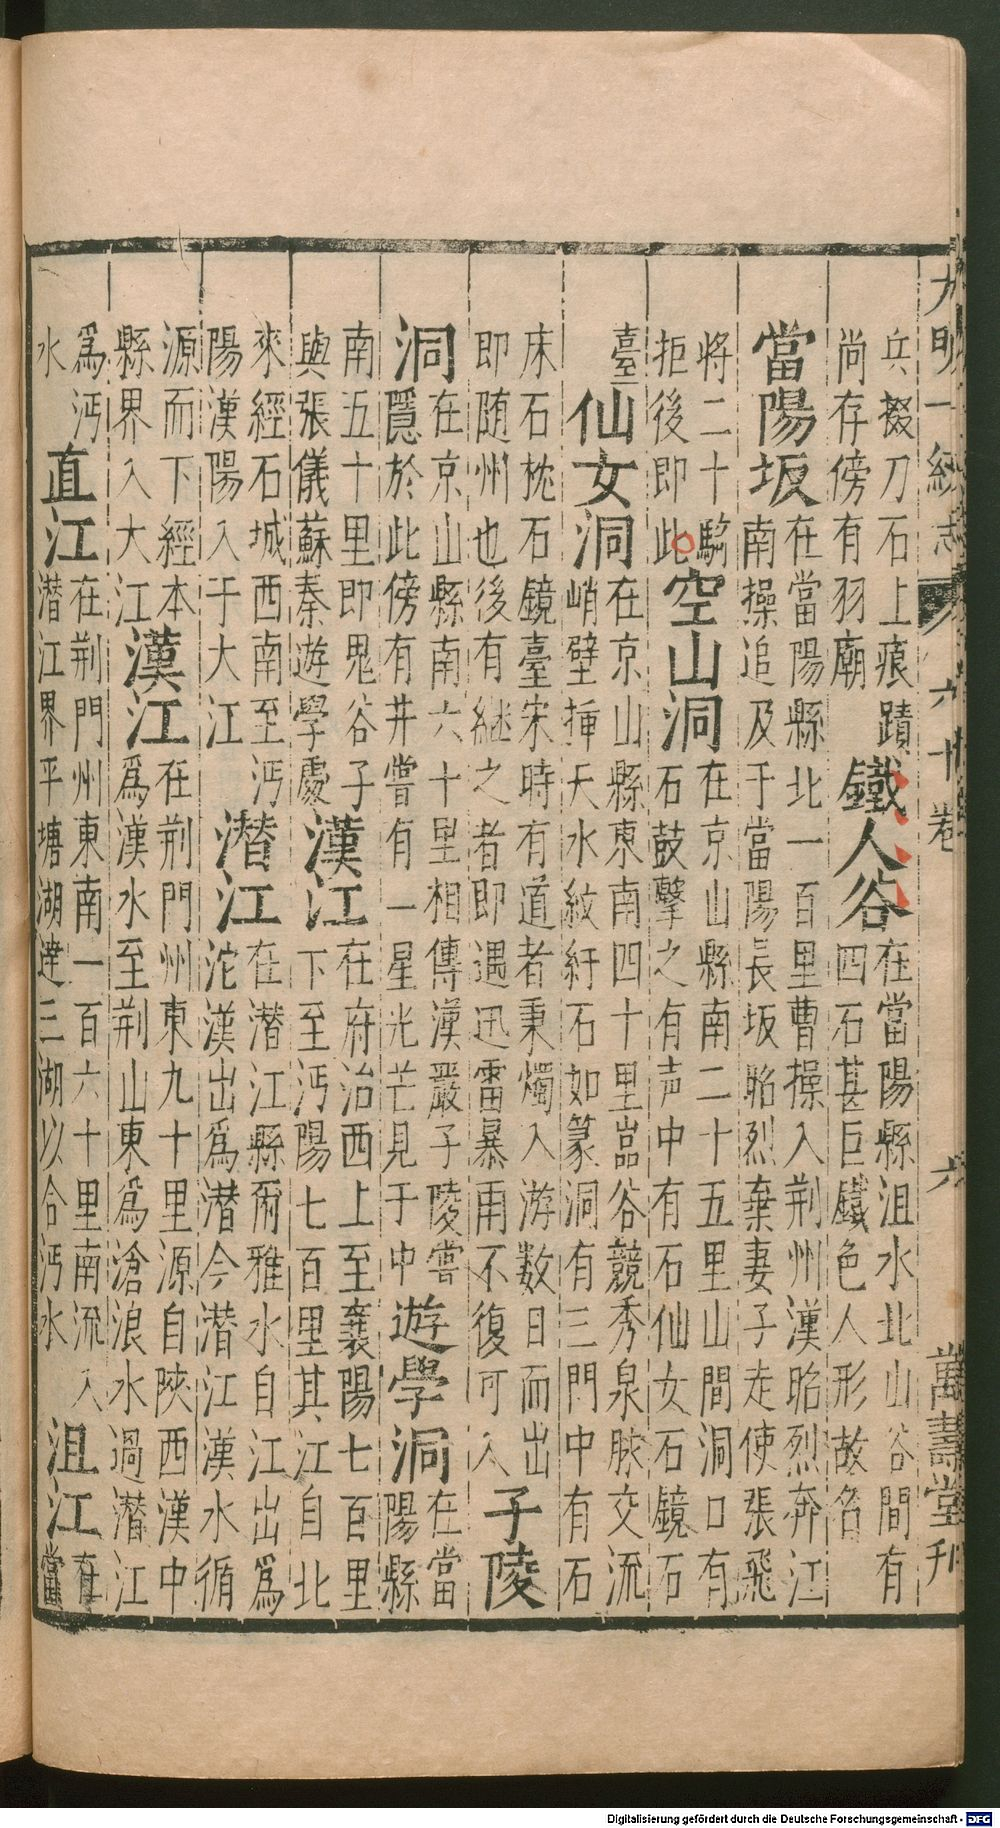 大明一統志 六十卷 六 萬壽堂刊
兵掇刀石上痕蹟
尚存傍有羽廟
鐵人谷
在當陽縣沮水北山谷間有
四石甚巨鐵色人形故名
當陽坂
在當陽縣北一百里曹操入荆州漢昭烈奔江
南操追及于當陽長坂昭烈棄妻子走使張飛
將二十騎
拒後即此
空山洞
在京山縣南二十五里山間洞口有
石鼓擊之有声中有石仙女石鏡石
臺
仙女洞
在京山縣東南四十里嵓谷競秀泉脉交流
峭壁揷天水紋紆石如篆洞有三門中有石
床石枕石鏡臺宋時有道者秉燭入游数日而出
即随州也後有継之者即遇迅雷暴雨不復可入
子陵
洞
在京山縣南六十里相傳漢嚴子陵嘗
隱於此傍有井嘗有一星光芒見于中
遊學洞
在當
陽縣
南五十里即鬼谷子
與張儀蘇秦遊學處
漢江
在府治西上至襄陽七百里
下至沔陽七百里其江自北
來經石城西南至沔
陽漢陽入于大江
潜江
在潜江縣爾雅水自江出為
沱漢出為潜今潜江漢水循
源而下經本
縣界入大江
漢江
在荆門州東九十里源自陝西漢中
為漢水至荆山東為滄浪水過潜江
為沔
水
直江
在荆門州東南一百六十里南流入
潜江界平塘湖達三湖以合沔水
沮江
在
當